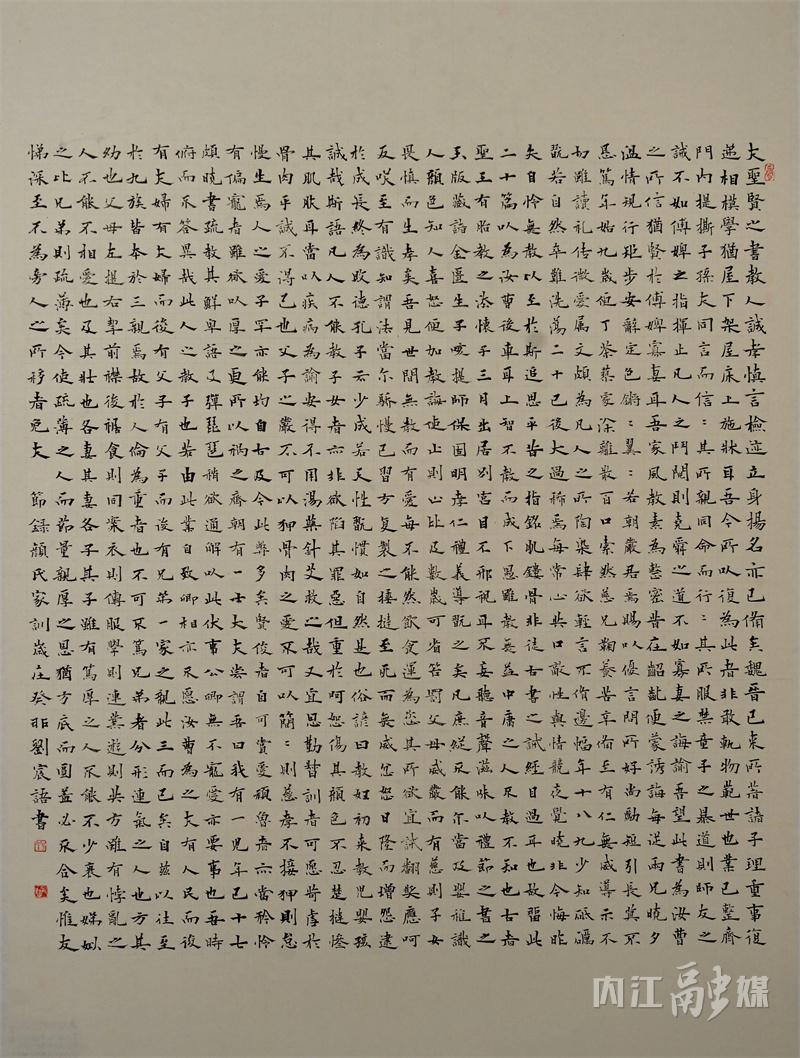 大聖賢之書教人誠孝慎言檢迹立身揚名亦已備矣魏晉已來所著諸子理重事復
遞相模學猶屋下架屋床上施牀耳吾今所以復為此者非敢軌物範世也業已整齊
門內提撕子孫夫同言而信:其所親同命而行:其所服禁童子之暴道則師友之
誡不如傅婢之指揮止凡人之鬥鬩則堯舜之道不如寡妻之誨諭吾望此書為汝曹
之所信猶賢於傅婢寡妻耳吾家風教素為整密昔在齠齔便蒙誘誨每從兩兄曉夕
溫情規行矩步安辭定色鏘:翼:若朝嚴君焉賜以優言問所好尚勵短引長莫不
懇篤年始九歲便丁荼蓼家塗離散百口索然慈兄鞠養苦辛備至有仁無威導示不
切雖讀礼傳微愛属文頗為凡人之所陶染肆欲輕言不脩邊幅年十八九少知砥礪
習若自然卒難洗蕩二十已後大過稀焉每常心共口敵性與情競夜覺曉非今悔昨
失自怜無教以至於斯追思平昔之指銘肌鏤骨非徒古書之誡經目過耳也故留此
二十篇以為汝曹後車耳上智不教而成下愚雖教無益中庸之人不教不知也古者
聖王有胎教之法懷子三月出居別宮目不邪視耳不妄聽音聲滋味以禮節之書之
玉版藏諸金匱生子咳提師保固明孝仁禮義導習之矣凡庶縱不能尔當及嬰稚識
人顏色知人喜怒便加教誨使止則止比及數歲可省笞罰父母威嚴而有慈則子女
畏慎而生孝矣吾見世間無教而有愛每不能然飲食運為恣其所欲宜誡翻獎應呵
反咲至有識知謂法當尔驕慢已習方復製之捶撻至死而無威忿怒日隆而增怨逮
於成長終為敗德孔子云少成若天性習慣如自然是也俗諺曰教婦初來教兒嬰孩
誠哉斯語凡人不能教子女者亦非欲陷其罪惡但重於呵怒傷其顏色不忍楚撻慘
其肌膚耳當以疾病為諭安得不用湯藥針艾救之哉又宜思勤督訓者可愿苛虐於
骨肉乎誠不得已也父子之嚴不可以狎骨肉之愛不可以簡:則慈孝不接狎則怠
慢生焉人之愛子罕亦能均自古及今此弊多矣賢俊者自可賞愛頑魯者亦當矜怜
有偏寵者雖欲以厚之更所以禍之齊朝有一士大夫嘗謂吾曰我有一兒年已十七
頗曉書疏教其鮮卑語及彈琵琶稍欲通解以此伏事公卿無不寵愛亦要事也吾時
俯而不答異哉此人之教子也若由此業自致卿相亦不愿汝曹為之夫有人民而後
有夫婦有夫婦而後有父子有父子而後有兄弟一家之親此三而已矣自茲以往至
於九族皆本於三親焉故於人倫為重者也不可不篤兄弟者分形連氣之人也方其
幼也父母左提右挈前襟後裾食則同案衣則傳服學則連業遊則共方雖有悖亂之
人不能不相愛也及其壯也各妻其妻各子其子雖有篤厚之人不能不少衰也娣姒
之比兄弟則疏薄矣今使疏薄之人而節量親厚之恩猶方底而圓蓋必不合矣惟友
悌深至不為旁人之所移者免夫 節錄顏氏家訓歲在癸卯劉宸語書
内江融媒